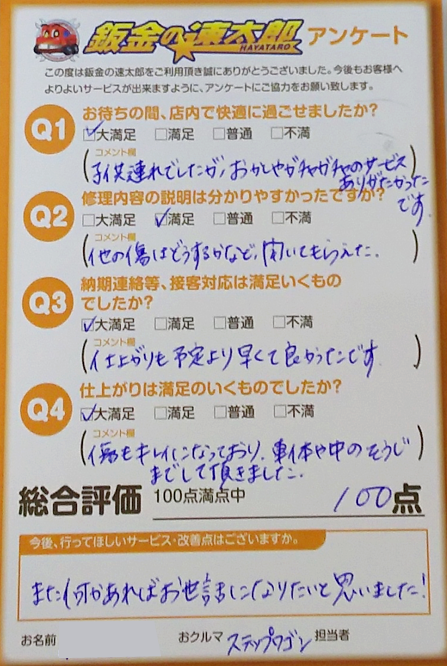 鈑金の速太郎 アンケート
HAYATARO
この度は鈑金の速太郎をご利用頂き誠にありがとうございました。今後もお客様へ
よりよいサービスが出来ますように、アンケートにご協力をお願い致します。
Q1 お待ちの間、店内で快適に過ごせましたか?
大満足 満足 普通 不満
コメント欄
子供連れでしたが、おかしやガチャガチャのサービス
ありがたかった
です。
Q2 修理内容の説明は分かりやすかったですか?
大満足 満足 普通 不満
コメント欄
他の傷はどうするかなど、聞いてもらえた。
Q3 納期連絡等、接客対応は満足いくもの
でしたか?
大満足 満足 普通 不満
コメント欄
仕上がりも予定より早くて良かったです。
Q4 仕上がりは満足のいくものでしたか?
大満足 満足 普通 不満
コメント欄
傷もキレイになっており、車体や中のそうじ
までして頂きました。
総合評価 100点満点中 100点
今後、行ってほしいサービス・改善点はございますか。
また何かあればお世話になりたいと思いました!
お名前 おクルマ ステップワゴン 担当者